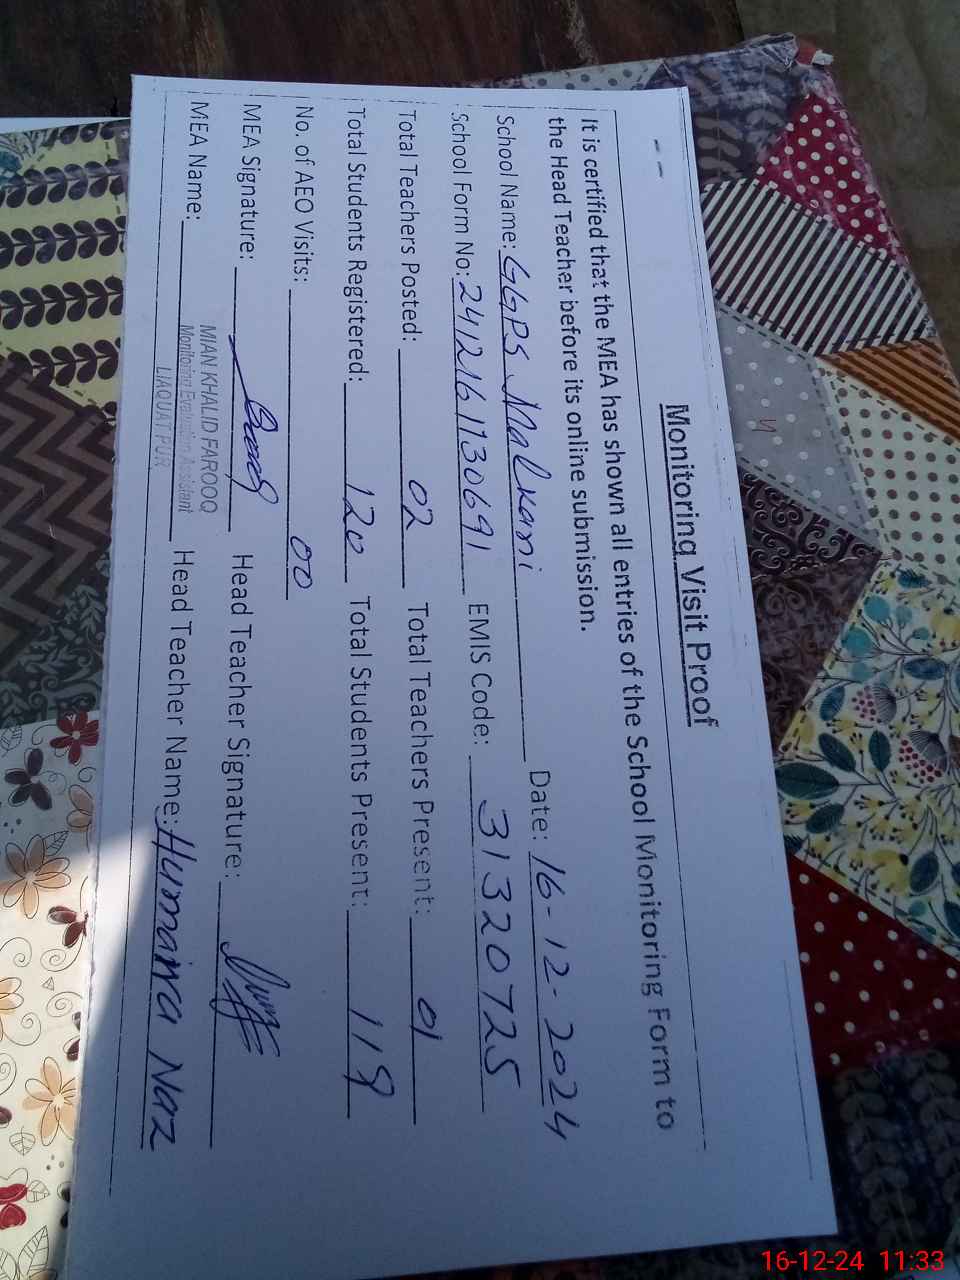 Monitoring Visit Proof
It is certified that the MEA has shown all entries of the School Monitoring Form to
the Head Teacher before its online submission.
School Name: GGPS Malkani Date: 16-12-2024
School Form No: 2412161130691 EMIS Code: 31320725
Total Teachers Posted: 02 Total Teachers Present: 01
Total Students Registered: 120 Total Students Present: 119
No. of AEO Visits: 00
MEA Signature: Head Teacher Signature:
MIAN KHALID FAROOQ
Monitoring Evaluation Assistant
LIAQUAT PUR
MEA Name: Head Teacher Name: Humaira Naz
16-12-24 11:33